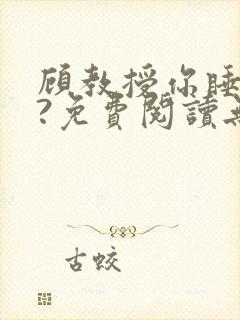 顾教授你睡
?免費閱讀
古蛟